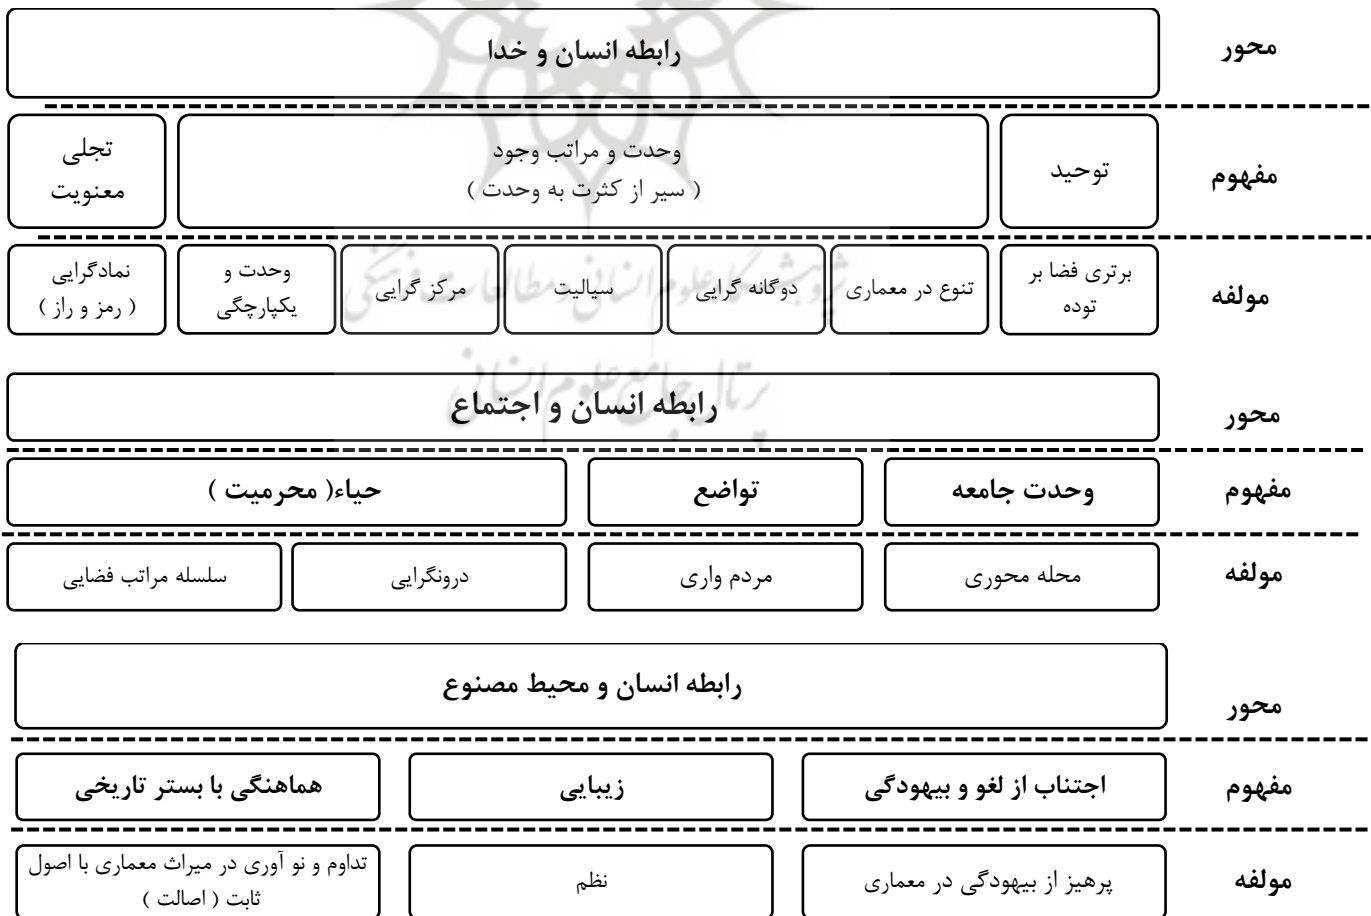 محور
رابطه انسان و خدا
مفهوم
توحید
وحدت و مراتب وجود
( سیر از کثرت به وحدت )
تجلی
معنویت
مولفه
برتری فضا بر
توده
تنوع در معماری
دوگانه گرایی
سیالیت
مرکز گرایی
وحدت و
یکپارچگی
نمادگرایی
( رمز و راز )
پژوهشگاه علوم انسانی و مطالعات فرهنگی
پرتال جامع علوم انسانی
محور
رابطه انسان و اجتماع
مفهوم
وحدت جامعه
تواضع
حیاء( محرمیت )
مولفه
محله محوری
مردم واری
درونگرایی
سلسله مراتب فضایی
محور
رابطه انسان و محیط مصنوع
مفهوم
اجتناب از لغو و بیهودگی
زیبایی
هماهنگی با بستر تاریخی
مولفه
پرهیز از بیهودگی در معماری
نظم
تداوم و نو آوری در میراث معماری با اصول
ثابت ( اصالت )